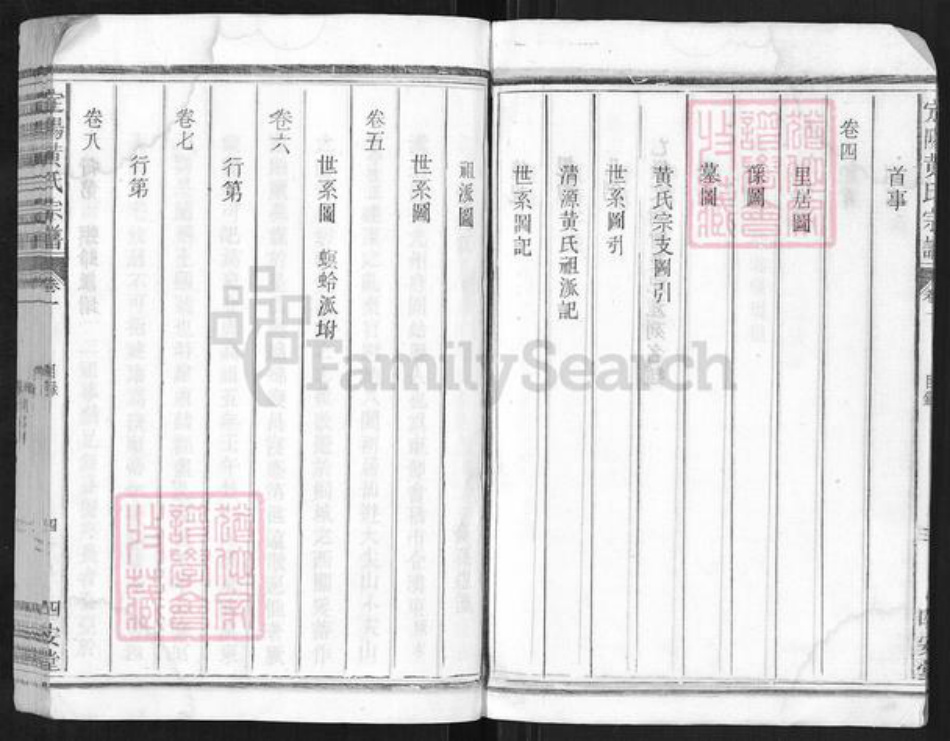 首事
卷四
里居圖
像圖
墓圖
黃氏宗支圖引
世系圖引
清源黃氏祖派記
世系圖記
祖派圖
世系圖
卷五
世系圖 螟蛉派坿
卷六
行第
卷七
行第
卷八
黃氏宗譜
卷一
目錄
四
四安堂
FamilySearch